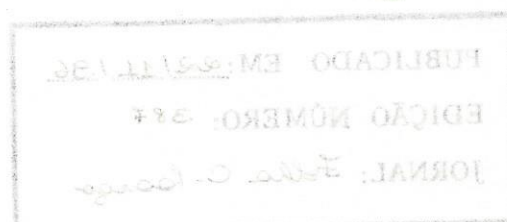 PUBLICADO EM: 22/11/96
EDIÇÃO NÚMERO:
JORNAL: Folha